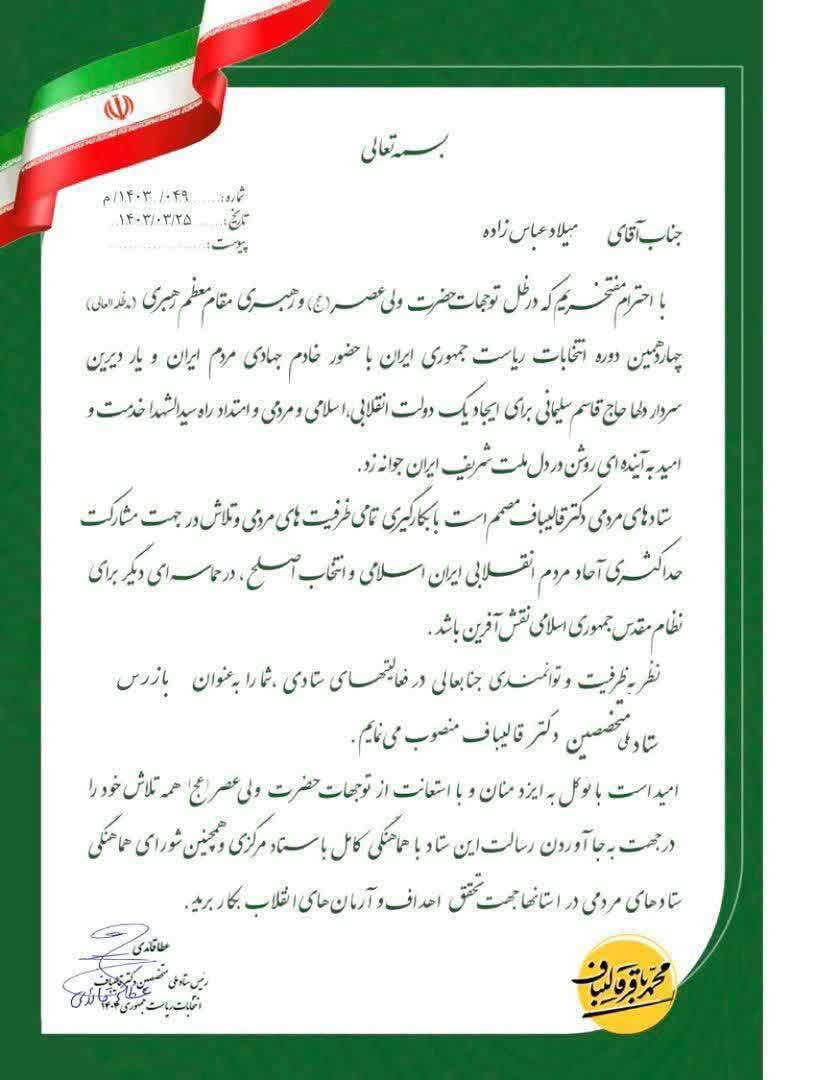 بسمه تعالی
شماره: ....... ۰۴۹/ ۱۴۰۳/ م
تاریخ: ...... ۱۴۰۳/۰۳/۲۵
پیوست: ..................
جناب آقای میلاد عباس زاده
با احترام مفتخریم که در ظل توجهات حضرت ولی عصر (عج) و رهبری مقام معظم رهبری (مدظله العالی)
چهاردهمین دوره انتخابات ریاست جمهوری ایران با حضور خادم جهادی مردم ایران و یار دیرین
سردار دلها حاج قاسم سلیمانی برای ایجاد یک دولت انقلابی، اسلامی و مردمی و امتداد راه سیدالشهدا خدمت و
امید به آینده ای روشن در دل ملت شریف ایران جوانه زد.
ستادهای مردمی دکتر قالیباف مصمم است با بکارگیری تمامی ظرفیت های مردمی و تلاش در جهت مشارکت
حداکثری آحاد مردم انقلابی ایران اسلامی و انتخاب اصلح، در حماسه ای دیگر برای
نظام مقدس جمهوری اسلامی نقش آفرین باشد.
نظر به ظرفیت و توانمندی جنابعالی در فعالیتهای ستادی، شما را به عنوان بازرس
ستاد ملی متخصصین دکتر قالیباف منصوب می نمایم.
امید است با توکل به ایزد منان و با استعانت از توجهات حضرت ولی عصر (عج) همه تلاش خود را
در جهت به جا آوردن رسالت این ستاد با هماهنگی کامل با ستاد مرکزی و همچنین شورای هماهنگی
ستادهای مردمی در استانها جهت تحقق اهداف و آرمان های انقلاب بکار برید.
عطا قائدی
رئیس ستاد ملی متخصصین دکتر قالیباف
انتخابات ریاست جمهوری ۱۴۰۳
محمدباقر قالیباف